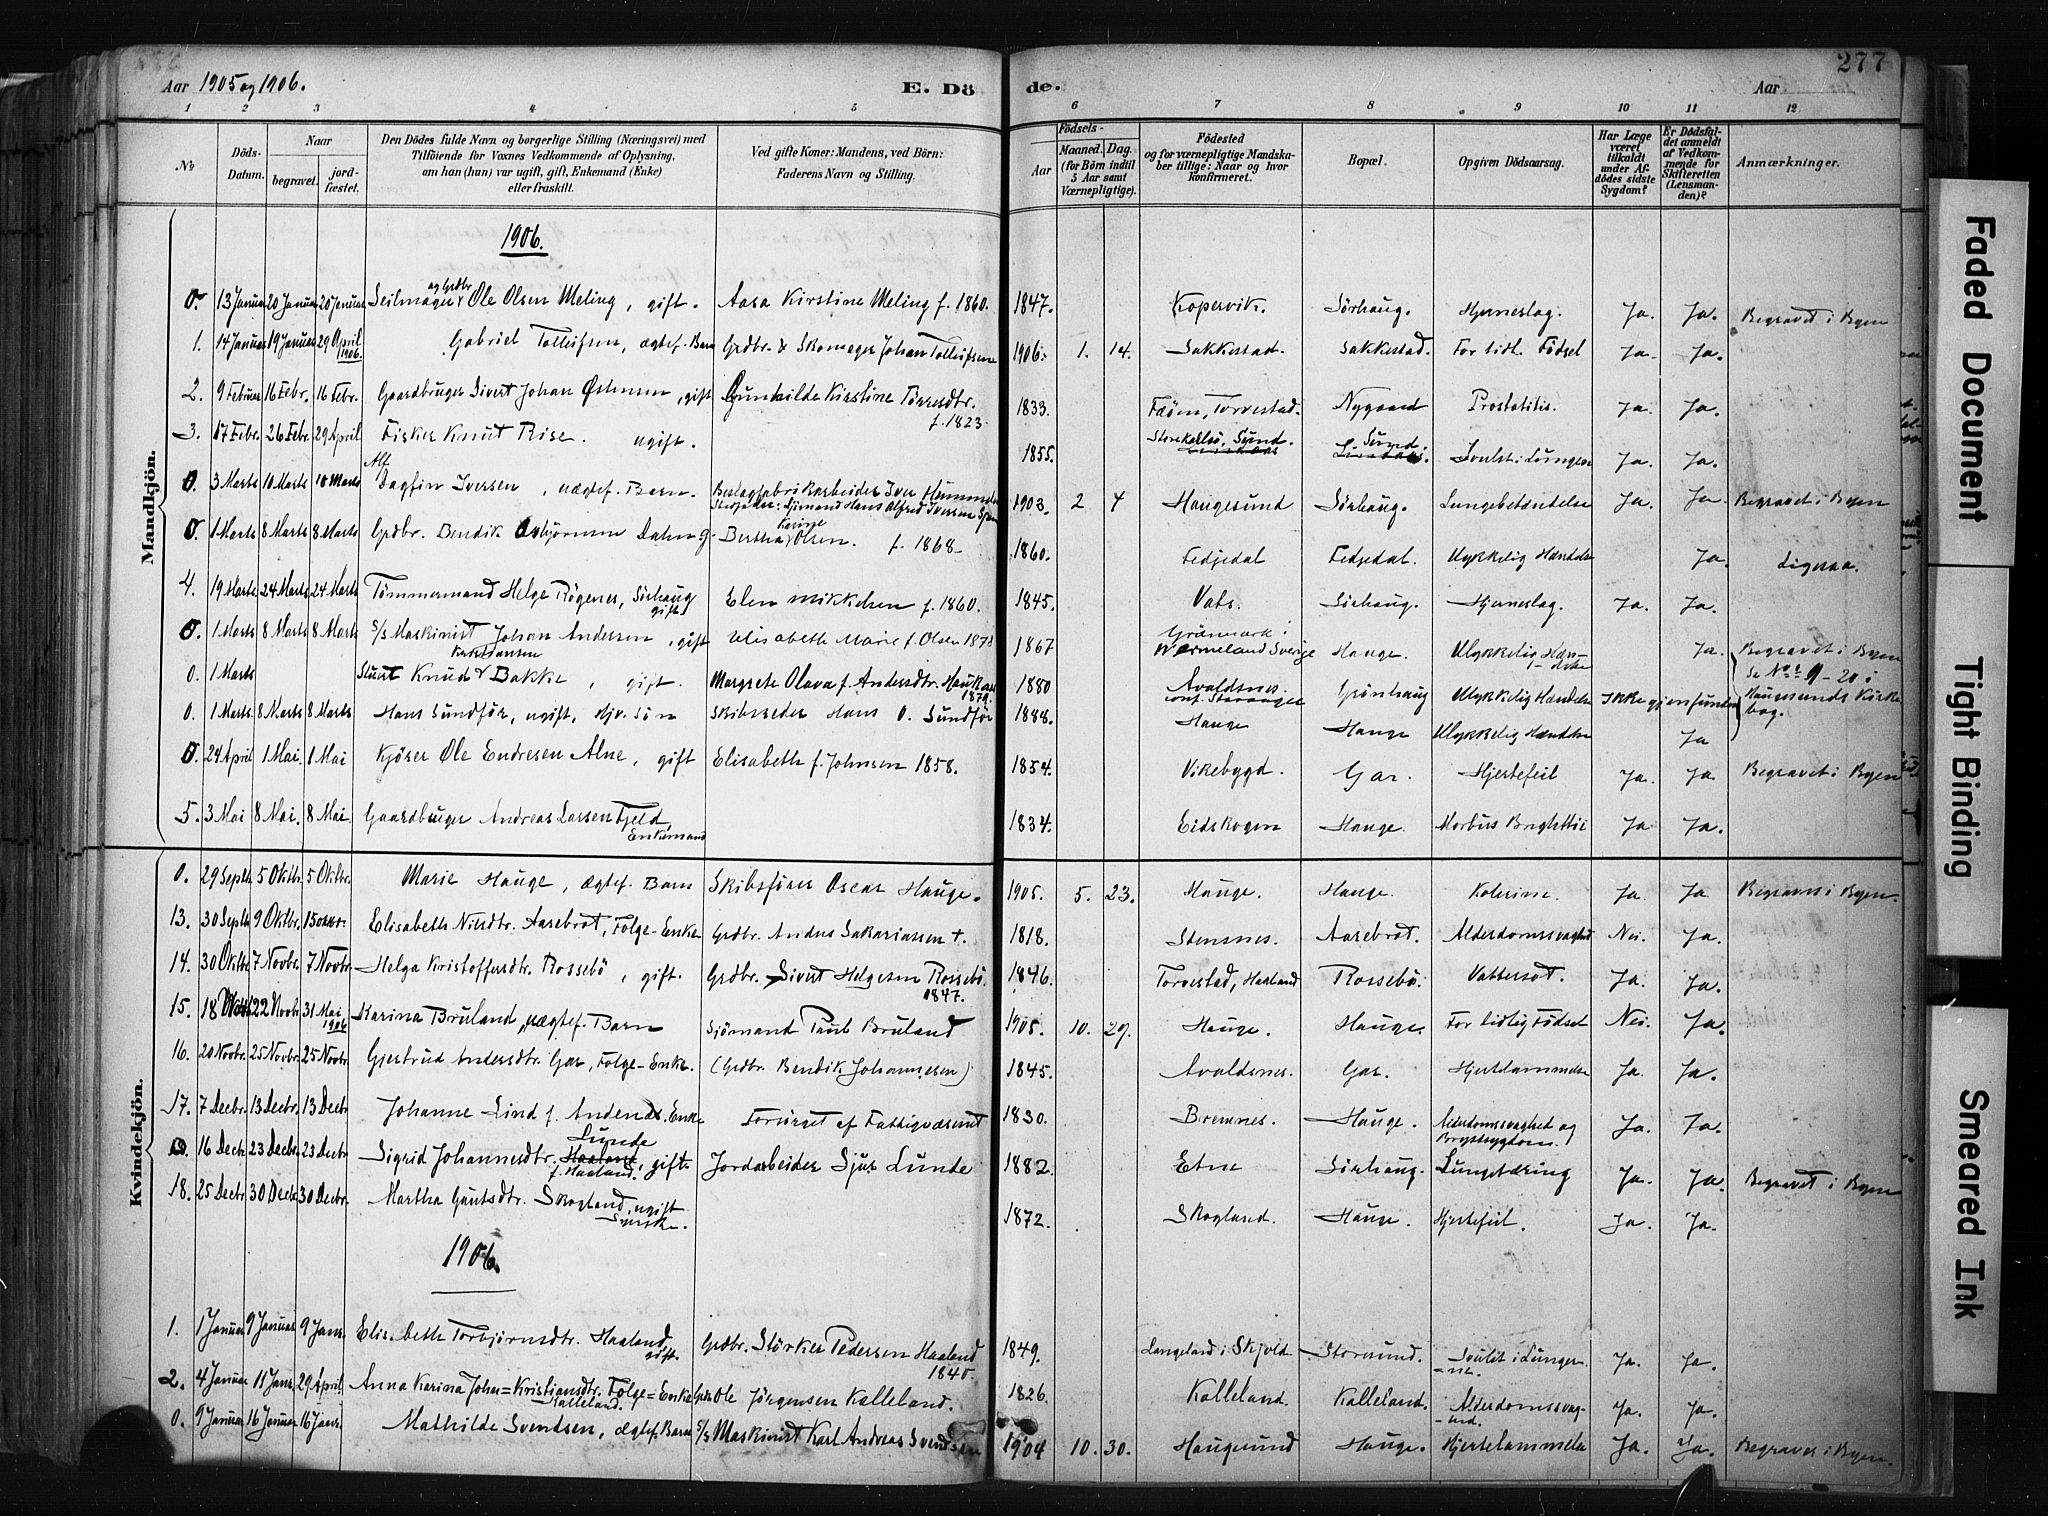 Aar 1905 og 1906. E. Döde. Aar 277
1 2 3 4 5 6 7 8 9 10 11 12
No
Döds-Datum.
Naar
begravet.
jordfæstet.
Den Dödes fulde Navn og borgerlige Stilling (Næringsvei) med
Tilföiende for Voxnes Vedkommende af Oplysning,
om han (hun) var ugift, gift, Enkemand (Enke)
eller fraskilt.
Ved gifte Koner: Mandens, ved Börn:
Faderens Navn og Stilling.
Födsels-
Aar
Maaned. Dag.
(for Börn indtil
5 Aar samt
Værnepligtige).
Födested
og for værnepligtige Mandskaber
tillige: Naar og hvor
konfirmeret.
Bopæl.
Opgiven Dödsaarsag.
Har Læge
været
tilkaldt
under Afdödes
sidste
Sygdom?
Er Dödsfaldet
anmeldt
af Vedkommende
for
Skifteretten
(Lensmanden)?
Anmærkninger.
Mandkjön.
1906.
0. 13 Januar 20 Januar 20 Januar Seilmager og Grdbr Ole Olsen Meling, gift. Aasa Kirstine Meling f. 1860. 1847. Kopervik. Sörhaug. Hjerneslag. Ja. Ja. Begravet i Byen
1. 14 Januar 19 Januar 29 April 1906. Gabriel Tolleifsen, ægtef. Barn Grdbr. & Skomager Johan Tolleifsen 1906. 1. 14. Sakkestad. Sakkestad. For tidl. Födsel Ja. Ja.
2. 9 Februar 16 Febr. 16 Febr. Gaardbruger Sivert Johan Østensen, gift Gunhilde Kirstine Törresdtr. f. 1823. 1833. Fæöen, Torvestad. Nygaard Prostatitis. Ja. Ja.
3. 17 Febr. 26 Febr. 29 April Fisker Knut Rise. ugift. 1855. Storekalsö, Sund. Sund. Svulst i Lungen Ja. Ja.
0. 3 Marts 10 Marts 10 Marts Alf Dagfin Iversen, uægtef. Barn. Beslagfabrikarbeider Iver
Stedfader: Sjömand Hans Alfred Iversen 1903. 2 4 Haugesund Sörhaug. Lungebetændelse Ja. Ja. Begravet i Byen
0. 1 Marts 8 Marts 8 Marts Grdbr. Bendik Asbjörnsen Dalen g. Bertha Karine Olsen. f. 1868. 1860. Fedjedal Fedjedal. Ulykkelig Hændelse Ja. Ligesaa.
4. 19 Marts 24 Marts 24 Marts Tömmermand Helge Rögenes, Sörhaug gift Elen Mikkelsen f. 1860. 1845. Vats. Sörhaug. Hjerneslag. Ja. Ja.
0. 1 Marts 8 Marts 8 Marts S/s Maskinist Johan Andersen, gift Elisabeth Marie f. Olsen 1878 1867 i Wermeland Sverige Hauge. Ulykkelig Hændelse Ja. Begravet i Byen
0. 1 Marts Stuert Knud Kristiansen Bakke, gift. Margrete Olava f. Andersdtr. 1879. 1880 Avaldsnes. conf. Stavanger Grönhaug Ulykkelig Hændelse Ikke gjenfunden Se No. 9-20 i Haugesunds Kirkebog.
0. 1 Marts 8 Marts 8 Marts Hans Sundför, ugift, Hjv. Sön Skibsreder Hans O. Sundför 1888. Hauge Hauge Ulykkelig Hændelse Ja
0. 24 April 1 Mai 1 Mai Kjörer Ole Endresen Alne, gift Elisabeth f. Johnsen 1858. 1854. Vikebygd. Gar. Hjertefeil Ja. Ja Begravet i Byen
5. 3 Mai 8 Mai. 8 Mai. Gaardbruger Andreas Larsen Fjeld Enkemand 1834. Eidskogen Hauge. Morbus Brightii Ja Ja.
Kvindekjön.
0. 29 Septb. 5 Oktb. 5 Oktbr. Marie Hauge, ægtef. Barn Skibsförer Oscar Hauge. 1905. 5. 23. Hauge. Hauge. Kolerine. Ja. Ja Begravet i Byen.
13. 30 Septb. 9 Oktbr. 15 Oktbr. Elisabeth Nilsdtr. Aarebrot, Folge-Enke Grdbr. Anders Sakariassen †. 1818. Stensnes. Aarebrot. Alderdomssvaghed Nei. Ja.
14. 30 Oktbr 7 Novbr. 7 Novbr. Helga Kristoffersdtr. Rossebö, gift. Grdbr. Sivert Helgesen Rossebö. 1847. 1846. Torvestad, Haaland Rossebö. Vattersot. Ja. Ja.
15. 18 22 Novbr. 31 Mai 1906 Karina Bruland, uægtef. Barn Sjömand Paul Bruland 1905. 10. 29. Hauge. Hauge. For tidlig Födsel Nei. Ja.
16. 20 Novbr. 25 Novbr. 25 Novbr. Gjertrud Andersdtr. Gar, Folge-Enke. (Grdbr. Bendik Johannesen) 1845. Avaldsnes. Gar. Hjertelammelse Ja. Ja.
17. 7 Decbr. 13 Decbr. 13 Decbr Johanne Lind f. Andenæs. Enke Forsörget af Fattigvæsenet 1830. Bremnes. Hauge. Alderdomssvaghed og Brystsygdom. Ja. Ja.
0. 16 Decb. 23 Decbr. 23 Decbr Sigrid Johannesdtr. Haaland Lunde f. Haaland, gift. Jordarbeider Sjur Lunde 1882. Etne Sörhaug. Lungetæring Ja. Ja. Begravet i Byen
18. 25 Decbr 30 Decbr 30 Decbr. Martha Gautsdtr. Skogland, ugift Syerske. 1872. Skogland. Hauge. Hjertefeil. Ja. Ja.
1906.
1. 1 Januar 9 Januar 9 Janr. Elisabeth Torbjörnsdtr. Haaland, gift. Grdbr. Störker Pedersen Haaland 1840. 1849. Langeland i Skjold. Storsund. Svulst i Lungerne. Ja. Ja.
2. 4 Januar 11 Janr. 29 April Anna Karina Johan=Kristiansdtr. Kalleland. Folge=Enke Grdbr Ole Jörgensen Kalleland. 1826. Kalleland. Kalleland. Alderdomssvaghed. Ja. Ja.
0. 9 Januar 16 Januar 16 Janr. Mathilde Svendsen, ægtef. Barn S/s Maskinist Karl Andreas Svendsen 1904 10. 30. Haugesund Hauge. Hjertelammelse Ja. Ja. Begravet i Byen.
Faded Document
Tight Binding
Smeared Ink